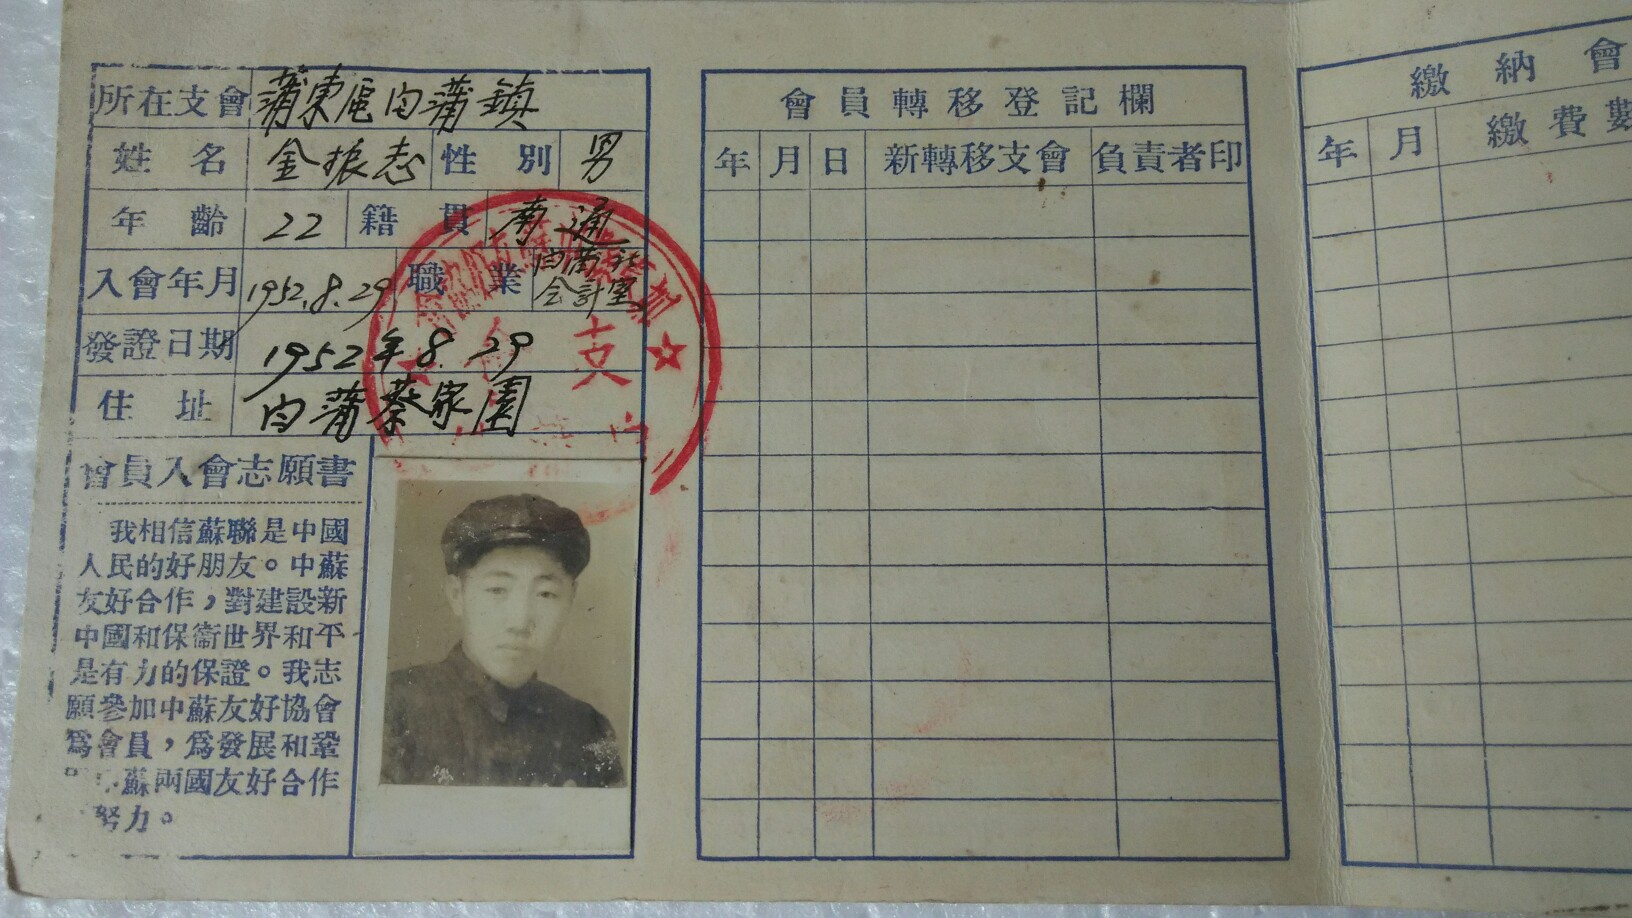 所在支會 蒲東區白蒲鎮
姓名 金振志 性別 男
年齡 22 籍貫 南通
入會年月 1952.8.29 職業 白蒲 会計室
發證日期 1952年8.29
住址 白蒲蔡家園
會員入會志願書
我相信蘇聯是中國
人民的好朋友。中蘇
友好合作，對建設新
中國和保衞世界和平
是有力的保證。我志
願參加中蘇友好協會
爲會員，爲發展和鞏
蘇兩國友好合作
努力。
支會
會員轉移登記欄
年 月 日 新轉移支會 負責者印
繳納會
年 月 繳費數